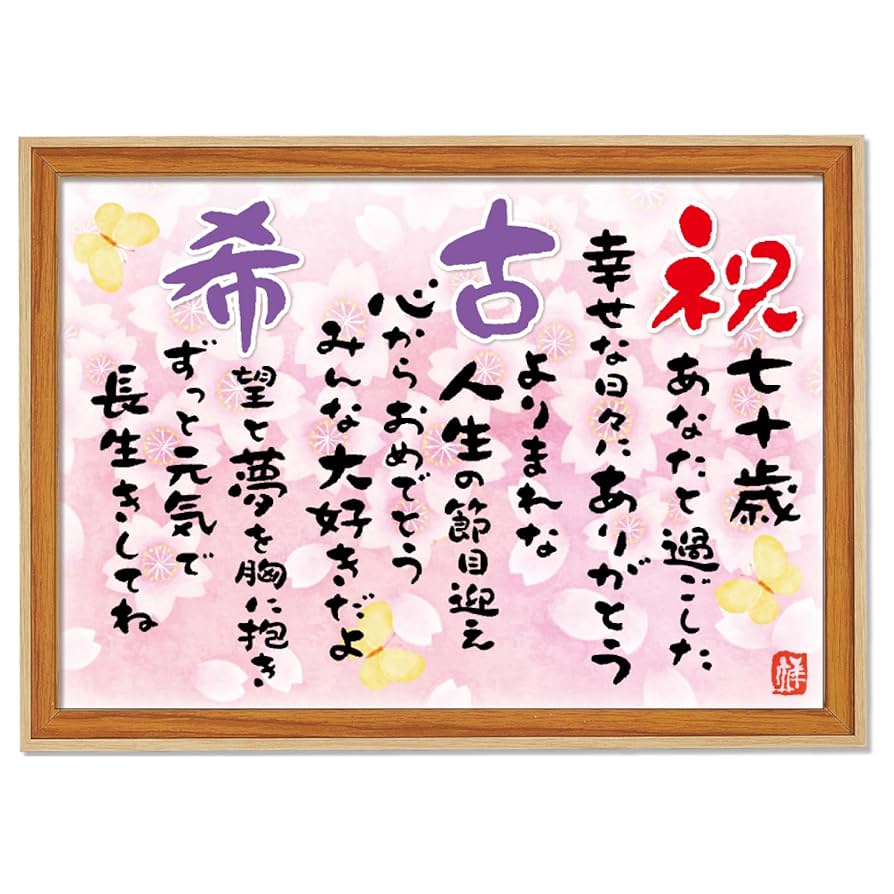 祝七十歳
あなたと過ごした
幸せな日々にありがとう
古よりまれな
人生の節目迎え
心からおめでとう
みんな大好きだよ
希望と夢を胸に抱き
ずっと元気で
長生きしてね